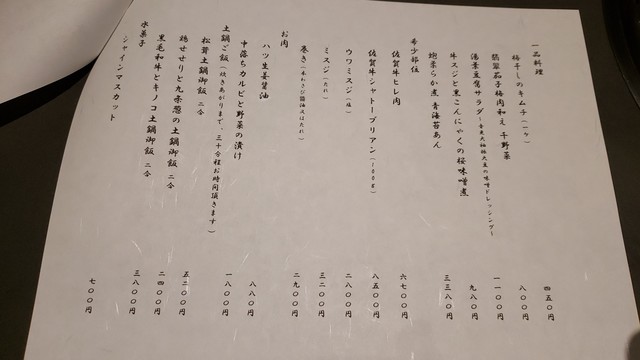 一品料理
梅干しのキムチ（一ヶ）
四五〇円
翡翠茄子梅肉和え 千野菜
八〇〇円
湯葉豆腐サラダ
一一〇〇円
牛スジと黒こんにゃくの桜味噌煮
九八〇円
鮑柔らか煮 青海苔あん
三三八〇円
希少部位
佐賀牛ヒレ肉
六七〇〇円
佐賀牛シャトーブリアン（１００ｇ）
八五〇〇円
ウワミスジ（塩）
二八〇〇円
ミスジ（たれ）
三二〇〇円
巻き（本わさび醤油又はたれ）
二九〇〇円
お肉
ハツ生姜醤油
八八〇円
中落ちカルビと野菜の漬け
一八〇〇円
土鍋ご飯（炊きあがりまで、三十分程お時間頂きます）
松茸土鍋御飯 二合
五二〇〇円
鶏せせりと九条葱の土鍋御飯 二合
二四〇〇円
黒毛和牛とキノコ土鍋御飯 二合
三八〇〇円
水菓子
シャインマスカット
七〇〇円